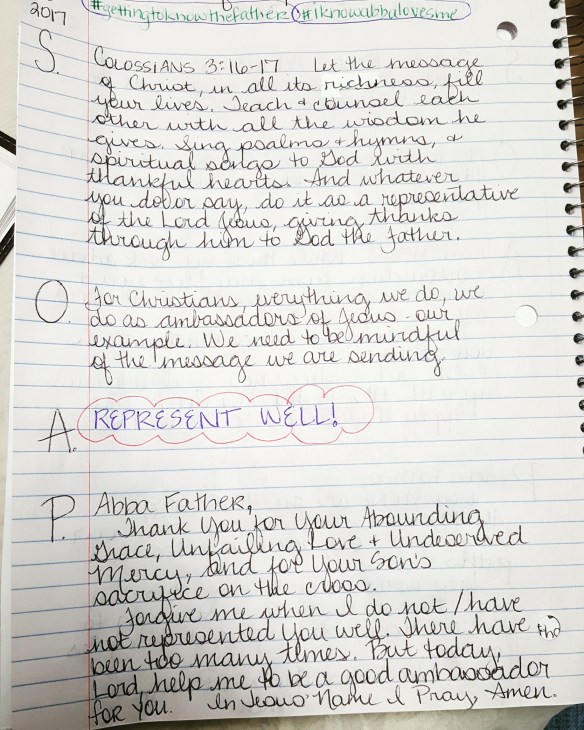 2017
#gettingtoknowthefather #iknowabbalovesme
S. COLOSSIANS 3:16-17 Let the message
of Christ, in all its richness, fill
your lives. Teach & counsel each
other with all the wisdom he
gives. Sing psalms & hymns, &
spiritual songs to God with
thankful hearts. And whatever
you do or say, do it as a representative
of the Lord Jesus, giving thanks
through him to God the Father.
O. For Christians, everything we do, we
do as ambassadors of Jesus - our
example. We need to be mindful
of the message we are sending
A. REPRESENT WELL!
P. Abba Father,
Thank You for Your Abounding
Grace, Unfailing Love & Undeserved
Mercy, and for Your Son's
sacrifice on the cross.
Forgive me when I do not/have
not represented You well. There have
been too many times. But today,
Lord, help me to be a good ambassador
for You. In Jesus' Name I Pray, Amen.